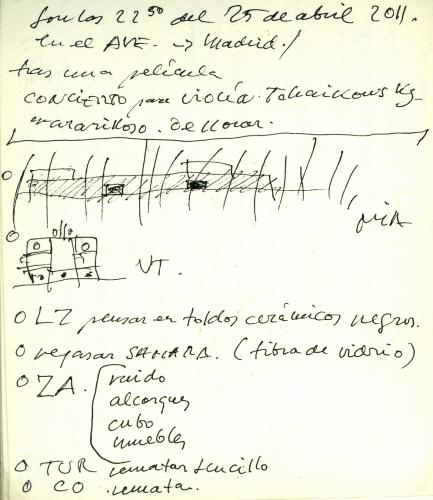 Son las 22 50 del 25 de abril 2011.
En el AVE. → Madrid /
tras una película
concierto para violín. Tchaikowsky
maravilloso. De llorar.
MIA
VT.
O LZ pensar en toldos cerámicos negros.
O repasar SAHARA. (fibra de vidrio)
O ZA. ruido
alcorques
cubo
muebles
O TUR rematar sencillo
O CO rematar.